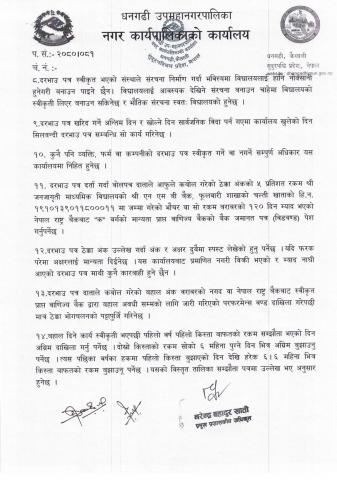 धनगढी उपमहानगरपालिका
नगर कार्यपालिकाको कार्यालय
प. सं.:- २०८०।०८१
च. नं. :-
धनगढी, कैलाली
सुदूरपश्चिम प्रदेश, नेपाल
८.दरभाउ पत्र स्वीकृत भएको संस्थाले संरचना निर्माण गर्दा भविष्यमा विद्यालयलाई हानि नोक्सानी
हुनेगरी बनाउन पाइने छैन। विद्यालयलाई आवश्यक देखिने संरचना बनाउन चाहेमा विद्यालयको
स्वीकृती लिएर बनाउन सकिनेछ र भौतिक संरचना स्वतः विद्यालयको हुनेछ ।
९.दरभाउ पत्र खरिद गर्ने अन्तिम दिन र खोल्ने दिन सार्वजनिक विदा पर्न गएमा कार्यालय खुलेको दिन
सिलवन्दी दरभाउ पत्र सम्बन्धि सो कार्य गरिनेछ ।
१०. कुनै पनि व्यक्ति, फर्म वा कम्पनीको दरभाउ पत्र स्वीकृत गर्ने वा नगर्ने सम्पूर्ण अधिकार यस
कार्यालयमा निहित हुनेछ ।
११. दरभाउ पत्र दर्ता गर्दा बोलपत्र दाताले आफुले कबोल गरेको ठेक्का अंकको ५ प्रतिशत रकम श्री
जनजागृती माध्यमिक विद्यालयको श्री एन एम बी बैंक, फूलवारी शाखाको चल्ती खाताको हि.न.
मा जम्मा गरेको भौचर वा सो रकम बराबरको १२० दिन म्याद भएको
नेपाल राष्ट्र बैंकबाट "क" वर्गको मान्यता प्राप्त वाणिज्य बैंकको बैंक जमानत पत्र (विडवण्ड) पेश
गर्नुपर्नेछ ।
१२.दरभाउ पत्र ठेक्का अंक उल्लेख गर्दा अंक र अक्षर दुवैमा स्पष्ट लेखेको हुनु पर्नेछ । यदि फरक
परेमा अक्षरलाई मान्यता दिईनेछ । यस कार्यालयबाट प्रमाणित नगरी विक्री भएको र म्याद नाघी
आएको दरभाउ पत्र माथी कुनै कारवाही हुने छैन ।
१३.दरभाउ पत्र दाताले कबोल गरेको बहाल अंक बराबरको नगद वा नेपाल राष्ट्र बैंकबाट स्वीकृत
प्राप्त वाणिज्य बैंक द्वारा बहाल अवधी सम्मको लागि जारी गरिएको परफरमेन्स बण्ड दाखिला गरेपछी
मात्र ठेक्का भोगचलनको पट्टापुर्जी गरिनेछ ।
१४.बहाल दिने कार्य स्वीकृती भएपछी पहिलो वर्ष पहिलो किस्ता वाफतको रकम सम्झौता भएको दिन
अग्रिम दाखिला गर्नु पर्नेछ । दोश्रो किस्ताको रकम सोको ६ महिना पुग्ने दिन भित्र अग्रिम बुझाउनु
पर्नेछ ।त्यस पछिका वर्षका हकमा पहिलो किस्ता बुझाएको दिन देखि हरेक ६।६ महिना भित्र
किस्ता वाफतको रकम बुझाउनु पर्नेछ ।यसको विस्तृत तालिका सम्झौता पत्रमा उल्लेख भए अनुसार
हुनेछ ।
नरेन्द्र बहादुर खाती
प्रमुख प्रशासकीय अधिकृत